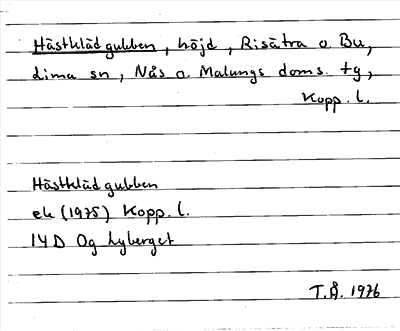 Hästklädgubben, höjd, Risätra o. Bu,
Lima sn, Nås o. Malungs doms. tg,
Kopp. l.
Hästklädgubben
ek (1975) Kopp. l.
14 D Og Lyberget
T.Å. 1976